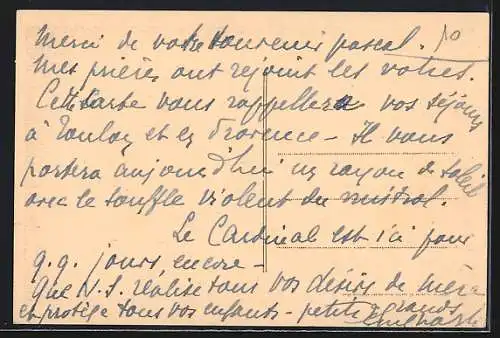 Merci de votre souvenir pascal. 
Mes prières ont rejoint les votres.
Cette carte vous rappellera vos séjours
à Toulon et en Provence - Il vous
portera aujourd'hui un rayon de soleil
avec le souffle violent du mistral.
Le Cardinal est ici pour
q.q. jours encore -
Que N.S. réalise tous vos désirs de mère
et protège tous vos enfants - petits & grands